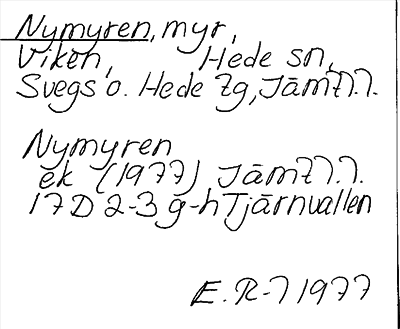 Nymyren, myr,
Viken, Hede sn,
Svegs o. Hede tg, Jämtl.l.
Nymyren
ek (1977) Jämtl.l.
17D 2-3 g-h Tjärnvallen
E. R-l 1977